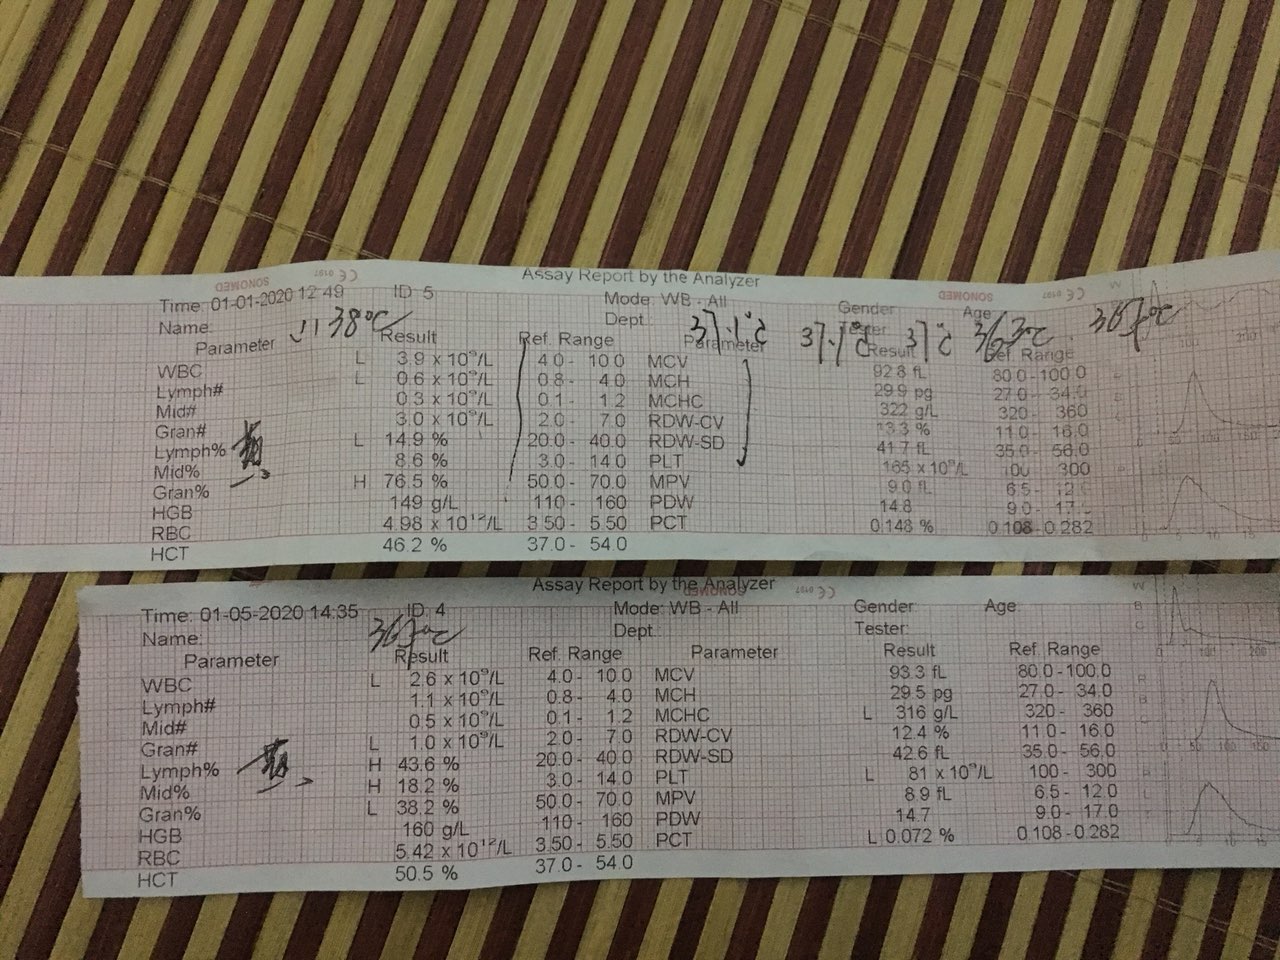 Assay Report by the Analyzer
SONOMED CE 0197 SONOMED CE 0197
Time: 01-01-2020 12:49 ID: 5 Mode: WB - All Gender: Age:
Name: 38°C Dept.: 37.1°C 37.1°C 37°C
Parameter Result Ref. Range Parameter Result Ref. Range
WBC L 3.9 x 10⁹/L 4.0 - 10.0 MCV 92.8 fL 80.0 - 100.0
Lymph# L 0.6 x 10⁹/L 0.8 - 4.0 MCH 29.9 pg 27.0 - 34.0
Mid# 0.3 x 10⁹/L 0.1 - 1.2 MCHC 322 g/L 320 - 360
Gran# 3.0 x 10⁹/L 2.0 - 7.0 RDW-CV 13.3 % 11.0 - 16.0
Lymph% L 14.9 % 20.0 - 40.0 RDW-SD 41.7 fL 35.0 - 56.0
Mid% 8.6 % 3.0 - 14.0 PLT 165 x 10⁹/L 100 - 300
Gran% H 76.5 % 50.0 - 70.0 MPV 9.0 fL 6.5 -
HGB 149 g/L 110 - 160 PDW 14.8 9.0 -
RBC 4.98 x 10¹²/L 3.50 - 5.50 PCT 0.148 % 0.108 - 0.282
HCT 46.2 % 37.0 - 54.0
Assay Report by the Analyzer
SONOMED CE 0197
Time: 01-05-2020 14:35 ID: 4 Mode: WB - All Gender: Age:
Name: Dept.: Tester:
Parameter Result Ref. Range Parameter Result Ref. Range
WBC L 2.6 x 10⁹/L 4.0 - 10.0 MCV 93.3 fL 80.0 - 100.0
Lymph# 1.1 x 10⁹/L 0.8 - 4.0 MCH 29.5 pg 27.0 - 34.0
Mid# 0.5 x 10⁹/L 0.1 - 1.2 MCHC L 316 g/L 320 - 360
Gran# L 1.0 x 10⁹/L 2.0 - 7.0 RDW-CV 12.4 % 11.0 - 16.0
Lymph% H 43.6 % 20.0 - 40.0 RDW-SD 42.6 fL 35.0 - 56.0
Mid% H 18.2 % 3.0 - 14.0 PLT L 81 x 10⁹/L 100 - 300
Gran% L 38.2 % 50.0 - 70.0 MPV 8.9 fL 6.5 - 12.0
HGB 160 g/L 110 - 160 PDW 14.7 9.0 - 17.0
RBC 5.42 x 10¹²/L 3.50 - 5.50 PCT L 0.072 % 0.108 - 0.282
HCT 50.5 % 37.0 - 54.0